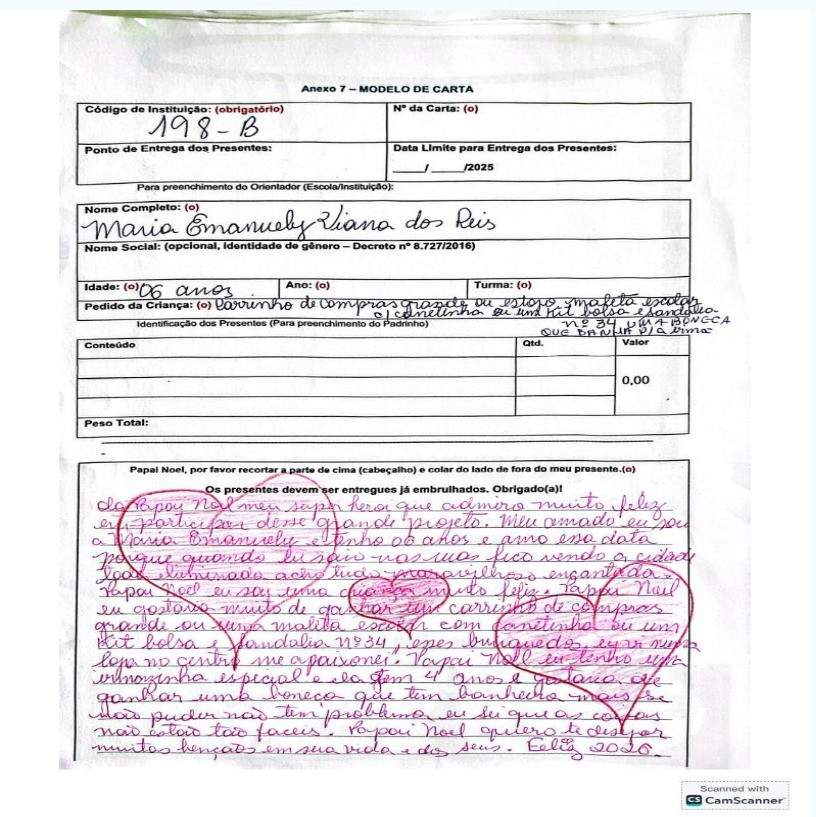 Anexo 7 – MODELO DE CARTA
Código de Instituição: (obrigatório)
198-B
Nº da Carta: (o)
Ponto de Entrega dos Presentes:
Data Limite para Entrega dos Presentes:
____/ _____/2025
Para preenchimento do Orientador (Escola/Instituição):
Nome Completo: (o)
Maria Emanuely Viana dos Reis
Nome Social: (opcional, identidade de gênero – Decreto nº 8.727/2016)
Idade: (o) 06 anos
Ano: (o)
Turma: (o)
Pedido da Criança: (o) Carrinho de compras grande ou estojo maleta escolar
c/ canetinha ou um Kit bolsa e sandalia
nº 34 UMA BONECA
QUE BANHA p/a irmã
Identificação dos Presentes (Para preenchimento do Padrinho)
Conteúdo
Qtd.
Valor
0,00
Peso Total:
Papai Noel, por favor recortar a parte de cima (cabeçalho) e colar do lado de fora do meu presente.(o)
Os presentes devem ser entregues já embrulhados. Obrigado(a)!
Papai Noel meu super heroi que admiro muito, feliz
em participar desse grande projeto. Meu amado eu sou
a Maria Emanuely e tenho 06 anos e amo essa data
porque quando eu saio nas ruas fico vendo a cidade
toda iluminada acho tudo maravilhoso, encantada.
Papai Noel eu sou uma criança muito feliz. Papai Noel
eu gostaria muito de ganhar um carrinho de compras
grande ou uma maleta escolar com canetinha ou um
Kit bolsa e sandalia Nº 34, eses brinquedos eu vi numa
loja no centro me apaixonei. Papai Noel eu tenho uma
irmãzinha especial e ela tem 4 anos e gostaria de
ganhar uma boneca que tem banheira mais se
não puder não tem problema, eu sei que as coisas
não estão tão faceis. Papai Noel quero te desejar
muitas bençãos em sua vida e dos seus. Feliz 2026.
Scanned with
CS CamScanner